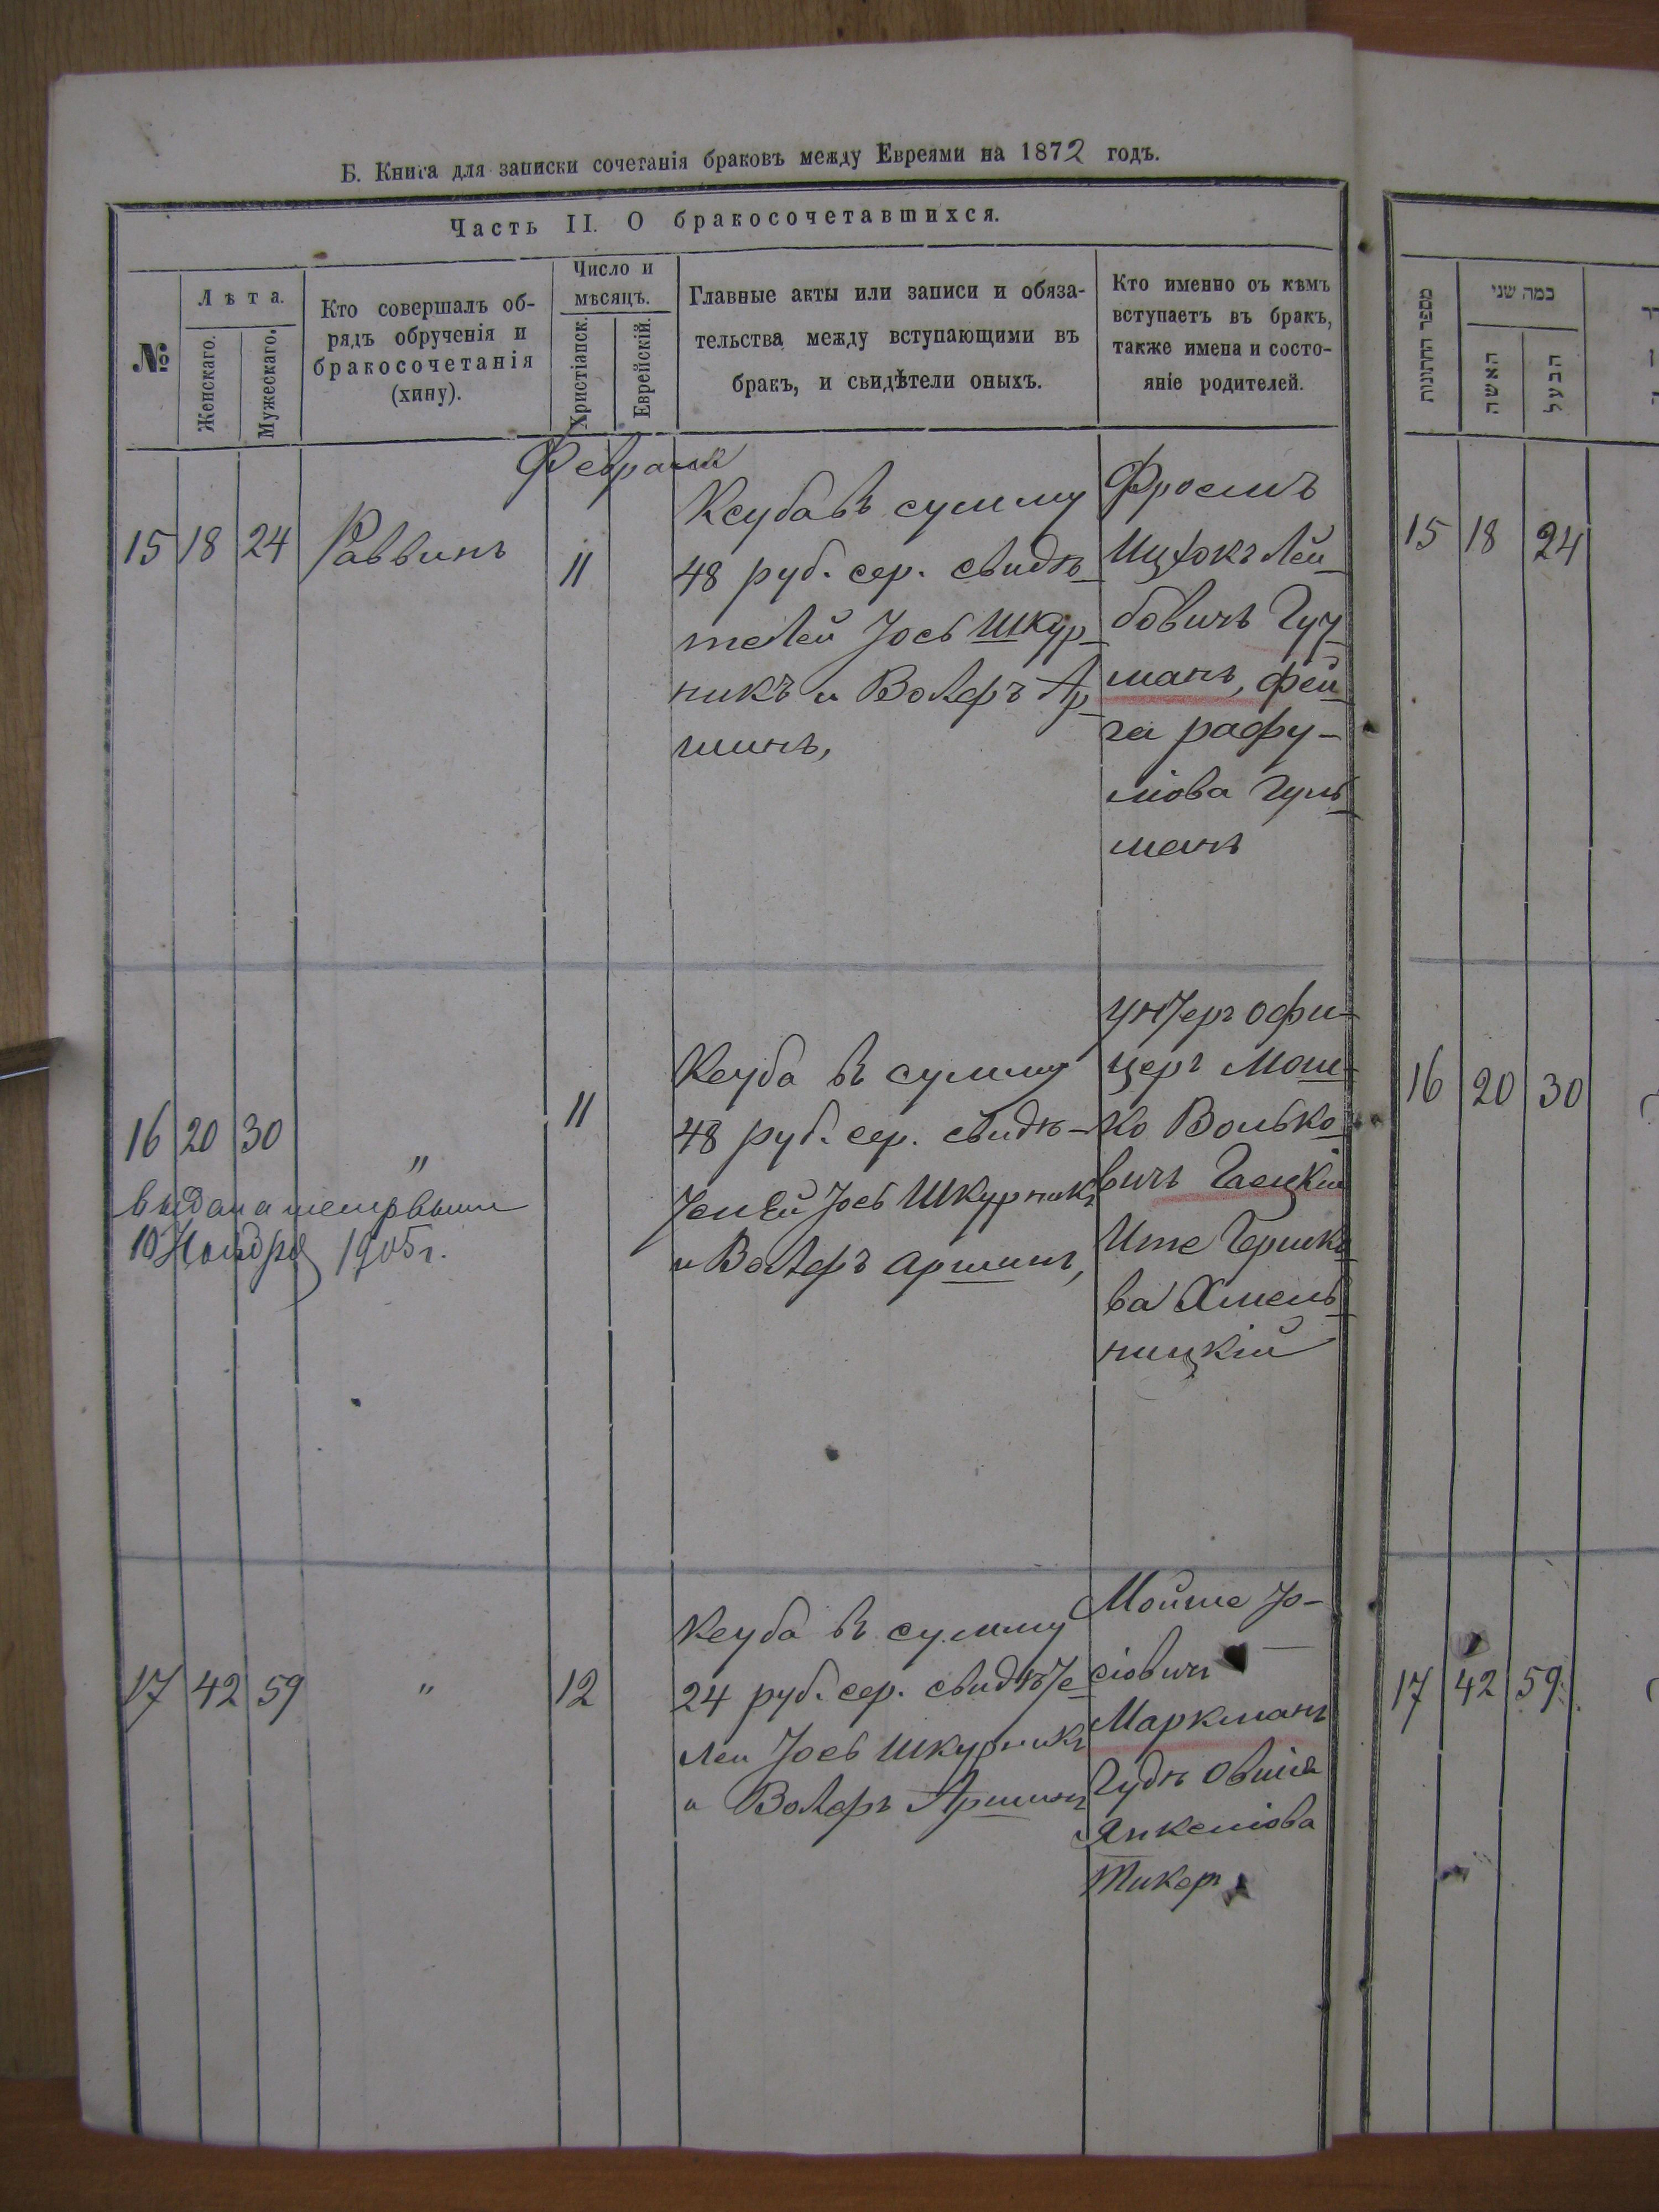 Б. Книга для записки сочетанія браковъ между Евреями на 1872 годъ.
Часть II. О бракосочетавшихся.
№
Лѣта.
Женскаго.
Мужескаго.
Кто совершалъ об-
рядъ обрученія и
бракосочетанія
(хипу).
Число и
мѣсяцъ.
Христіанск.
Еврейскій.
Главные акты или записи и обяза-
тельства между вступающими въ
бракъ, и свидѣтели оныхъ.
Кто именно съ кѣмъ
вступаетъ въ бракъ,
также имена и состо-
яніе родителей.
Февраля
15 18 24 Раввинъ 11
Ксуба въ сумму
48 руб. сер. свидѣ-
телей Іось Шкур-
никъ и Волфъ Ар-
шинъ,
Фроимъ
Ицхокъ Лей-
бовичъ Гуч-
манъ, Фей-
га рафу-
ліова Гуль-
манъ
16 20 30 " 11
выдана метрвыпи
10 Ноября 1905 г.
Ксуба въ сумму
48 руб. сер. свидѣ-
телей Іось Шкурникъ
и Волфъ Аршинъ,
Унтеръ офи-
церъ Мош-
ко Волько-
вичъ Гаецкій
Ите Гершко-
ва Хмель-
ницкій
17 42 59 " 12
Ксуба въ сумму
24 руб. сер. свидѣте-
лей Іось Шкурникъ
и Волфъ Аршинъ
Мойше Іо-
сіовичъ
Маркманъ
Гудѣ Овшія
Янкеліова
Тикеръ
מספר החתונות
כמה שני
האשה
הבעל
15 18 24
16 20 30
17 42 59